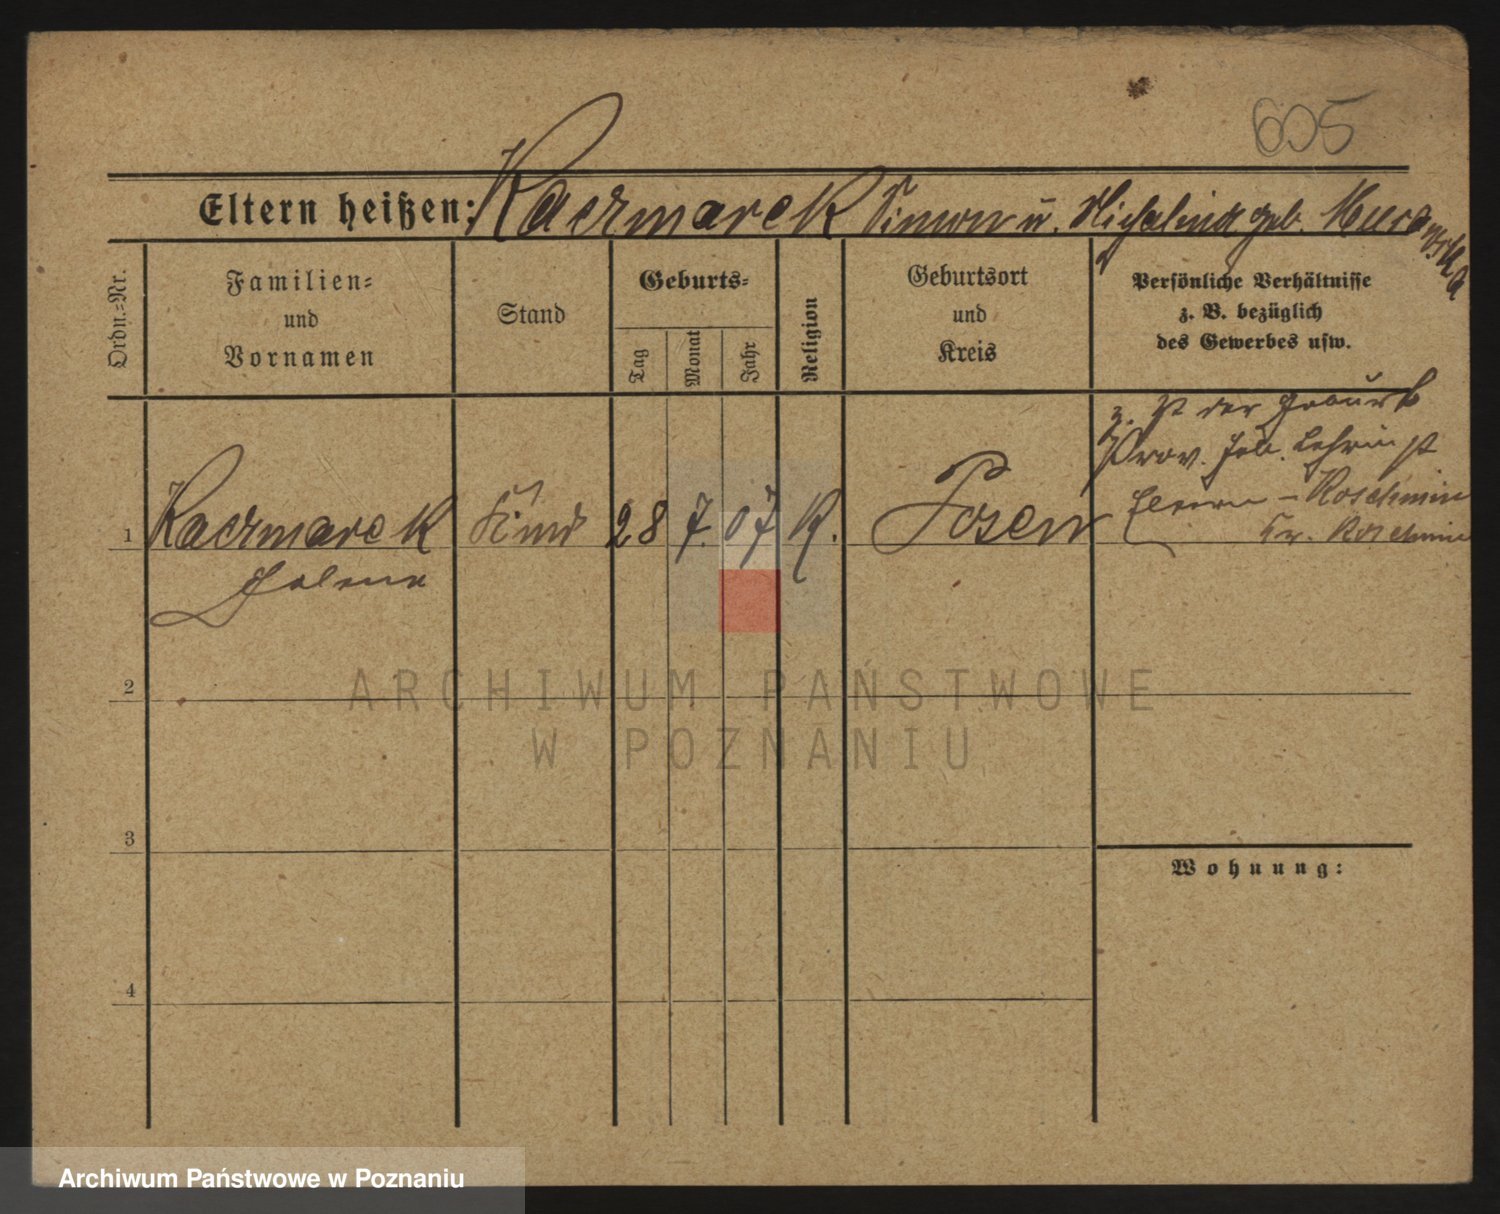 605
Eltern heißen: Kaczmarek Simon u. Michalina geb. Murawska
Ordn.-Nr.
Familien-
und
Vornamen
Stand
Geburts-
Tag
Monat
Jahr
Religion
Geburtsort
und
Kreis
Persönliche Verhältnisse
z. B. bezüglich
des Gewerbes usw.
z. Zt der Geburt
Prov. Heb. Lehrinst
Eltern – Koschmin
Kr. Koschmin
1 Kaczmarek Kind 28 7. 07 K. Posen
Helene
2
3
4
Wohnung:
ARCHIWUM PAŃSTWOWE
W POZNANIU
Archiwum Państwowe w Poznaniu